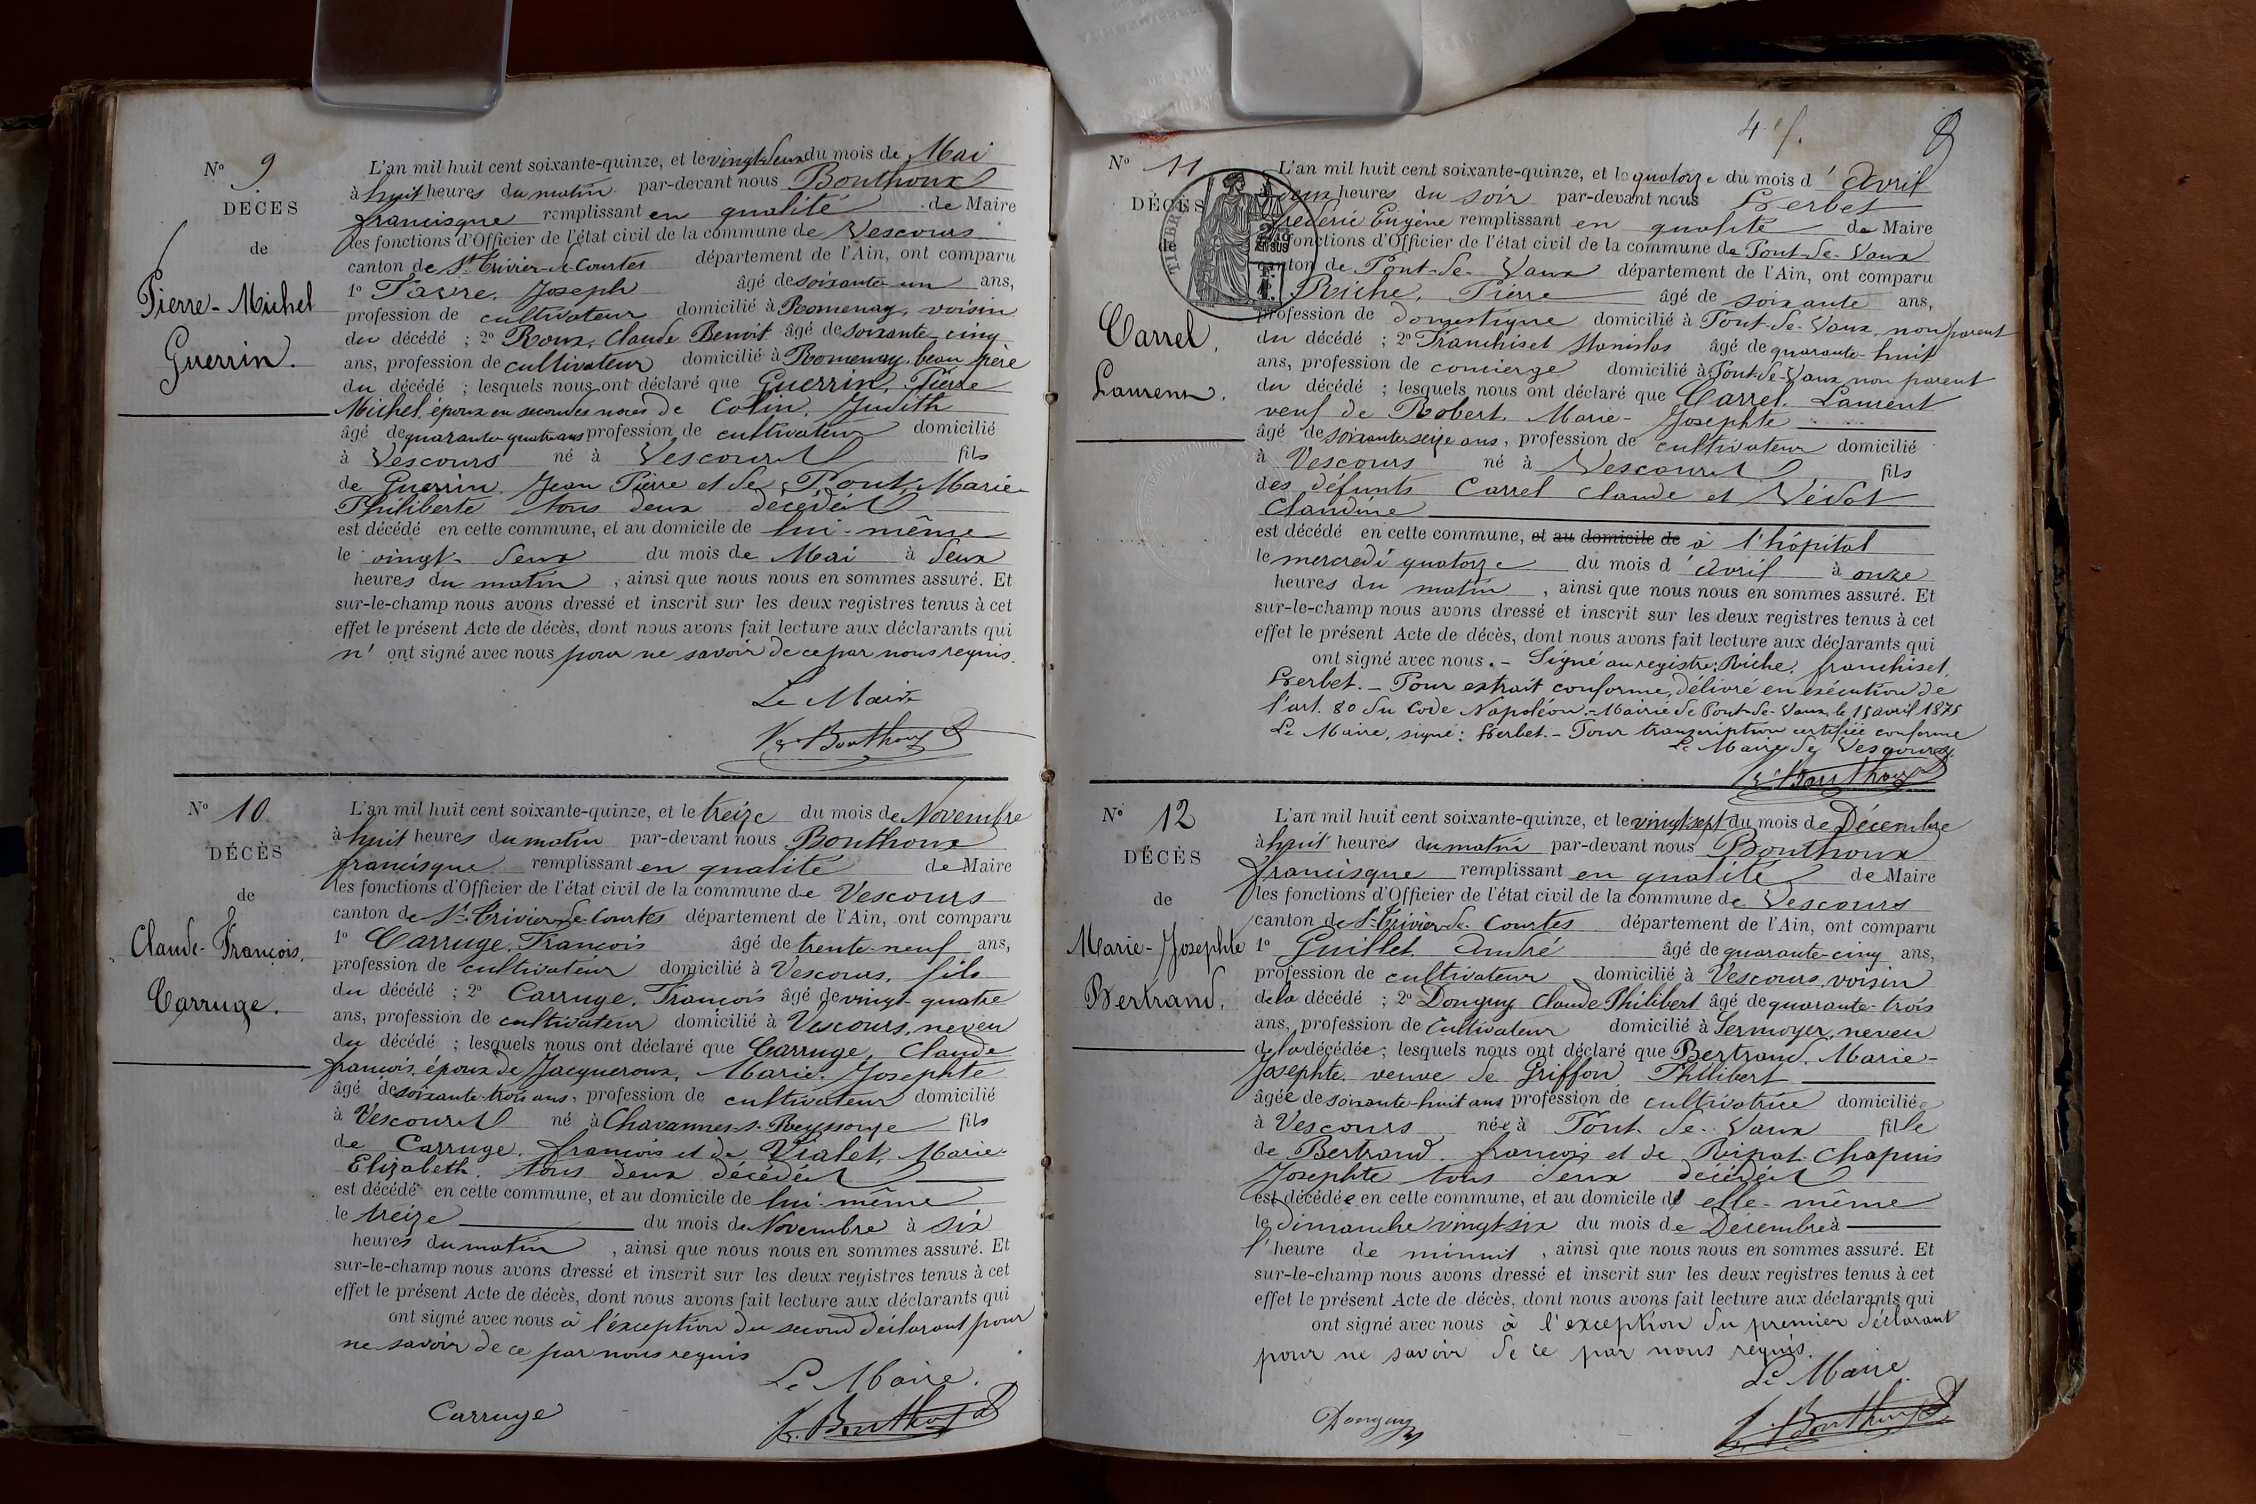 No 9
DÉCES
de
Pierre-Michel
Guerrin.
L'an mil huit cent soixante-quinze, et le vingt-deux du mois de Mai
à huit heures du matin par-devant nous Bouthoux
francisque remplissant en qualité de Maire
les fonctions d'Officier de l'état civil de la commune de Vescours
canton de St Trivier-de-Courtes département de l'Ain, ont comparu
1o Favre, Joseph âgé de soixante-un ans,
profession de cultivateur domicilié à Romenay, voisin
du décédé ; 2o Roux, Claude Benoit âgé de soixante-cinq
ans, profession de cultivateur domicilié à Romenay, beau père
du décédé ; lesquels nous ont déclaré que Guerrin, Pierre
Michel, époux en secondes noces de Colin, Judith
âgé de quarante-quatre ans profession de cultivateur domicilié
à Vescours né à Vescours fils
de Guerrin, Jean Pierre et de Pont, Marie-
Philiberte tous deux décédés
est décédé en cette commune, et au domicile de lui-même
le vingt-deux du mois de Mai à deux
heures du matin, ainsi que nous nous en sommes assuré. Et
sur-le-champ nous avons dressé et inscrit sur les deux registres tenus à cet
effet le présent Acte de décès, dont nous avons fait lecture aux déclarants qui
n' ont signé avec nous pour ne savoir de ce par nous requis.
Le Maire
Bouthoux
No 10
DÉCÈS
de
Claude-François,
Carruge.
L'an mil huit cent soixante-quinze, et le treize du mois de Novembre
à huit heures du matin par-devant nous Bouthoux
francisque remplissant en qualité de Maire
les fonctions d'Officier de l'état civil de la commune de Vescours
canton de St Trivier-de-Courtes département de l'Ain, ont comparu
1o Carruge, François âgé de trente-neuf ans,
profession de cultivateur domicilié à Vescours, fils
du décédé ; 2o Carruge, François âgé de vingt-quatre
ans, profession de cultivateur domicilié à Vescours, neveu
du décédé ; lesquels nous ont déclaré que Carruge, Claude
françois, époux de Jacqueroux, Marie-Josephte
âgé de soixante-trois ans, profession de cultivateur domicilié
à Vescours né à Chavannes-s-Reyssouze fils
de Carruge, françois et de Vialet, Marie-
Elizabeth tous deux décédés
est décédé en cette commune, et au domicile de lui-même
le treize du mois de Novembre à six
heures du matin, ainsi que nous nous en sommes assuré. Et
sur-le-champ nous avons dressé et inscrit sur les deux registres tenus à cet
effet le présent Acte de décès, dont nous avons fait lecture aux déclarants qui
ont signé avec nous à l'éxception du second déclarant pour
ne savoir de ce par nous requis
Le Maire.
Carruge
Bouthoux
8
No 11
DÉCÈS
de
Carrel,
Laurent.
L'an mil huit cent soixante-quinze, et le quatorze du mois d'Avril
à deux heures du soir par-devant nous Herbet
Frédéric Eugène remplissant en qualité de Maire
les fonctions d'Officier de l'état civil de la commune de Pont-de-Vaux
canton de Pont-de-Vaux département de l'Ain, ont comparu
1o Riche, Pierre âgé de soixante ans,
profession de domestique domicilié à Pont-de-Vaux, non parent
du décédé ; 2o Franchiset Stanislas âgé de quarante-huit
ans, profession de concierge domicilié à Pont-de-Vaux non parent
du décédé ; lesquels nous ont déclaré que Carrel, Laurent
veuf de Robert, Marie-Josephte
âgé de soixante seize ans, profession de cultivateur domicilié
à Vescours né à Vescours fils
des défunts Carrel Claude et Védot
Claudine
est décédé en cette commune, et au domicile de à l'hôpital
le mercredi quatorze du mois d'avril à onze
heures du matin, ainsi que nous nous en sommes assuré. Et
sur-le-champ nous avons dressé et inscrit sur les deux registres tenus à cet
effet le présent Acte de décès, dont nous avons fait lecture aux déclarants qui
ont signé avec nous. – Signé au registre: Riche, franchiset,
Herbet. – Pour extrait conforme, délivré en exécution de
l'art. 80 du Code Napoléon. – Mairie de Pont-de-Vaux, le 15 avril 1875
Le Maire, signé: Herbet. – Pour transcription certifiée conforme
Le Maire de Vescours
Bouthoux
No 12
DÉCÈS
de
Marie-Josephte
Bertrand.
L'an mil huit cent soixante-quinze, et le vingt sept du mois de Décembre
à huit heures du matin par-devant nous Bouthoux
francisque remplissant en qualité de Maire
les fonctions d'Officier de l'état civil de la commune de Vescours
canton de St-Trivier-de-Courtes département de l'Ain, ont comparu
1o Guillet, André âgé de quarante-cinq ans,
profession de cultivateur domicilié à Vescours, voisin
de la décédé ; 2o Donguy, Claude Philibert âgé de quarante-trois
ans, profession de Cultivateur domicilié à Sermoyer, neveu
de la décédée ; lesquels nous ont déclaré que Bertrand, Marie-
Josephte, veuve de Griffon Philibert
âgée de soixante-huit ans profession de cultivatrice domiciliée
à Vescours née à Pont-de-Vaux fille
de Bertrand, françois et de Ripat-Chapuis
Josephte tous deux décédés
est décédée en cette commune, et au domicile d' elle-même
le dimanche vingt-six du mois de Décembre à
l'heure de minuit, ainsi que nous nous en sommes assuré. Et
sur-le-champ nous avons dressé et inscrit sur les deux registres tenus à cet
effet le présent Acte de décès, dont nous avons fait lecture aux déclarants qui
ont signé avec nous à l'exception du premier déclarant
pour ne savoir de ce par nous requis.
Le Maire.
Donguy
Bouthoux